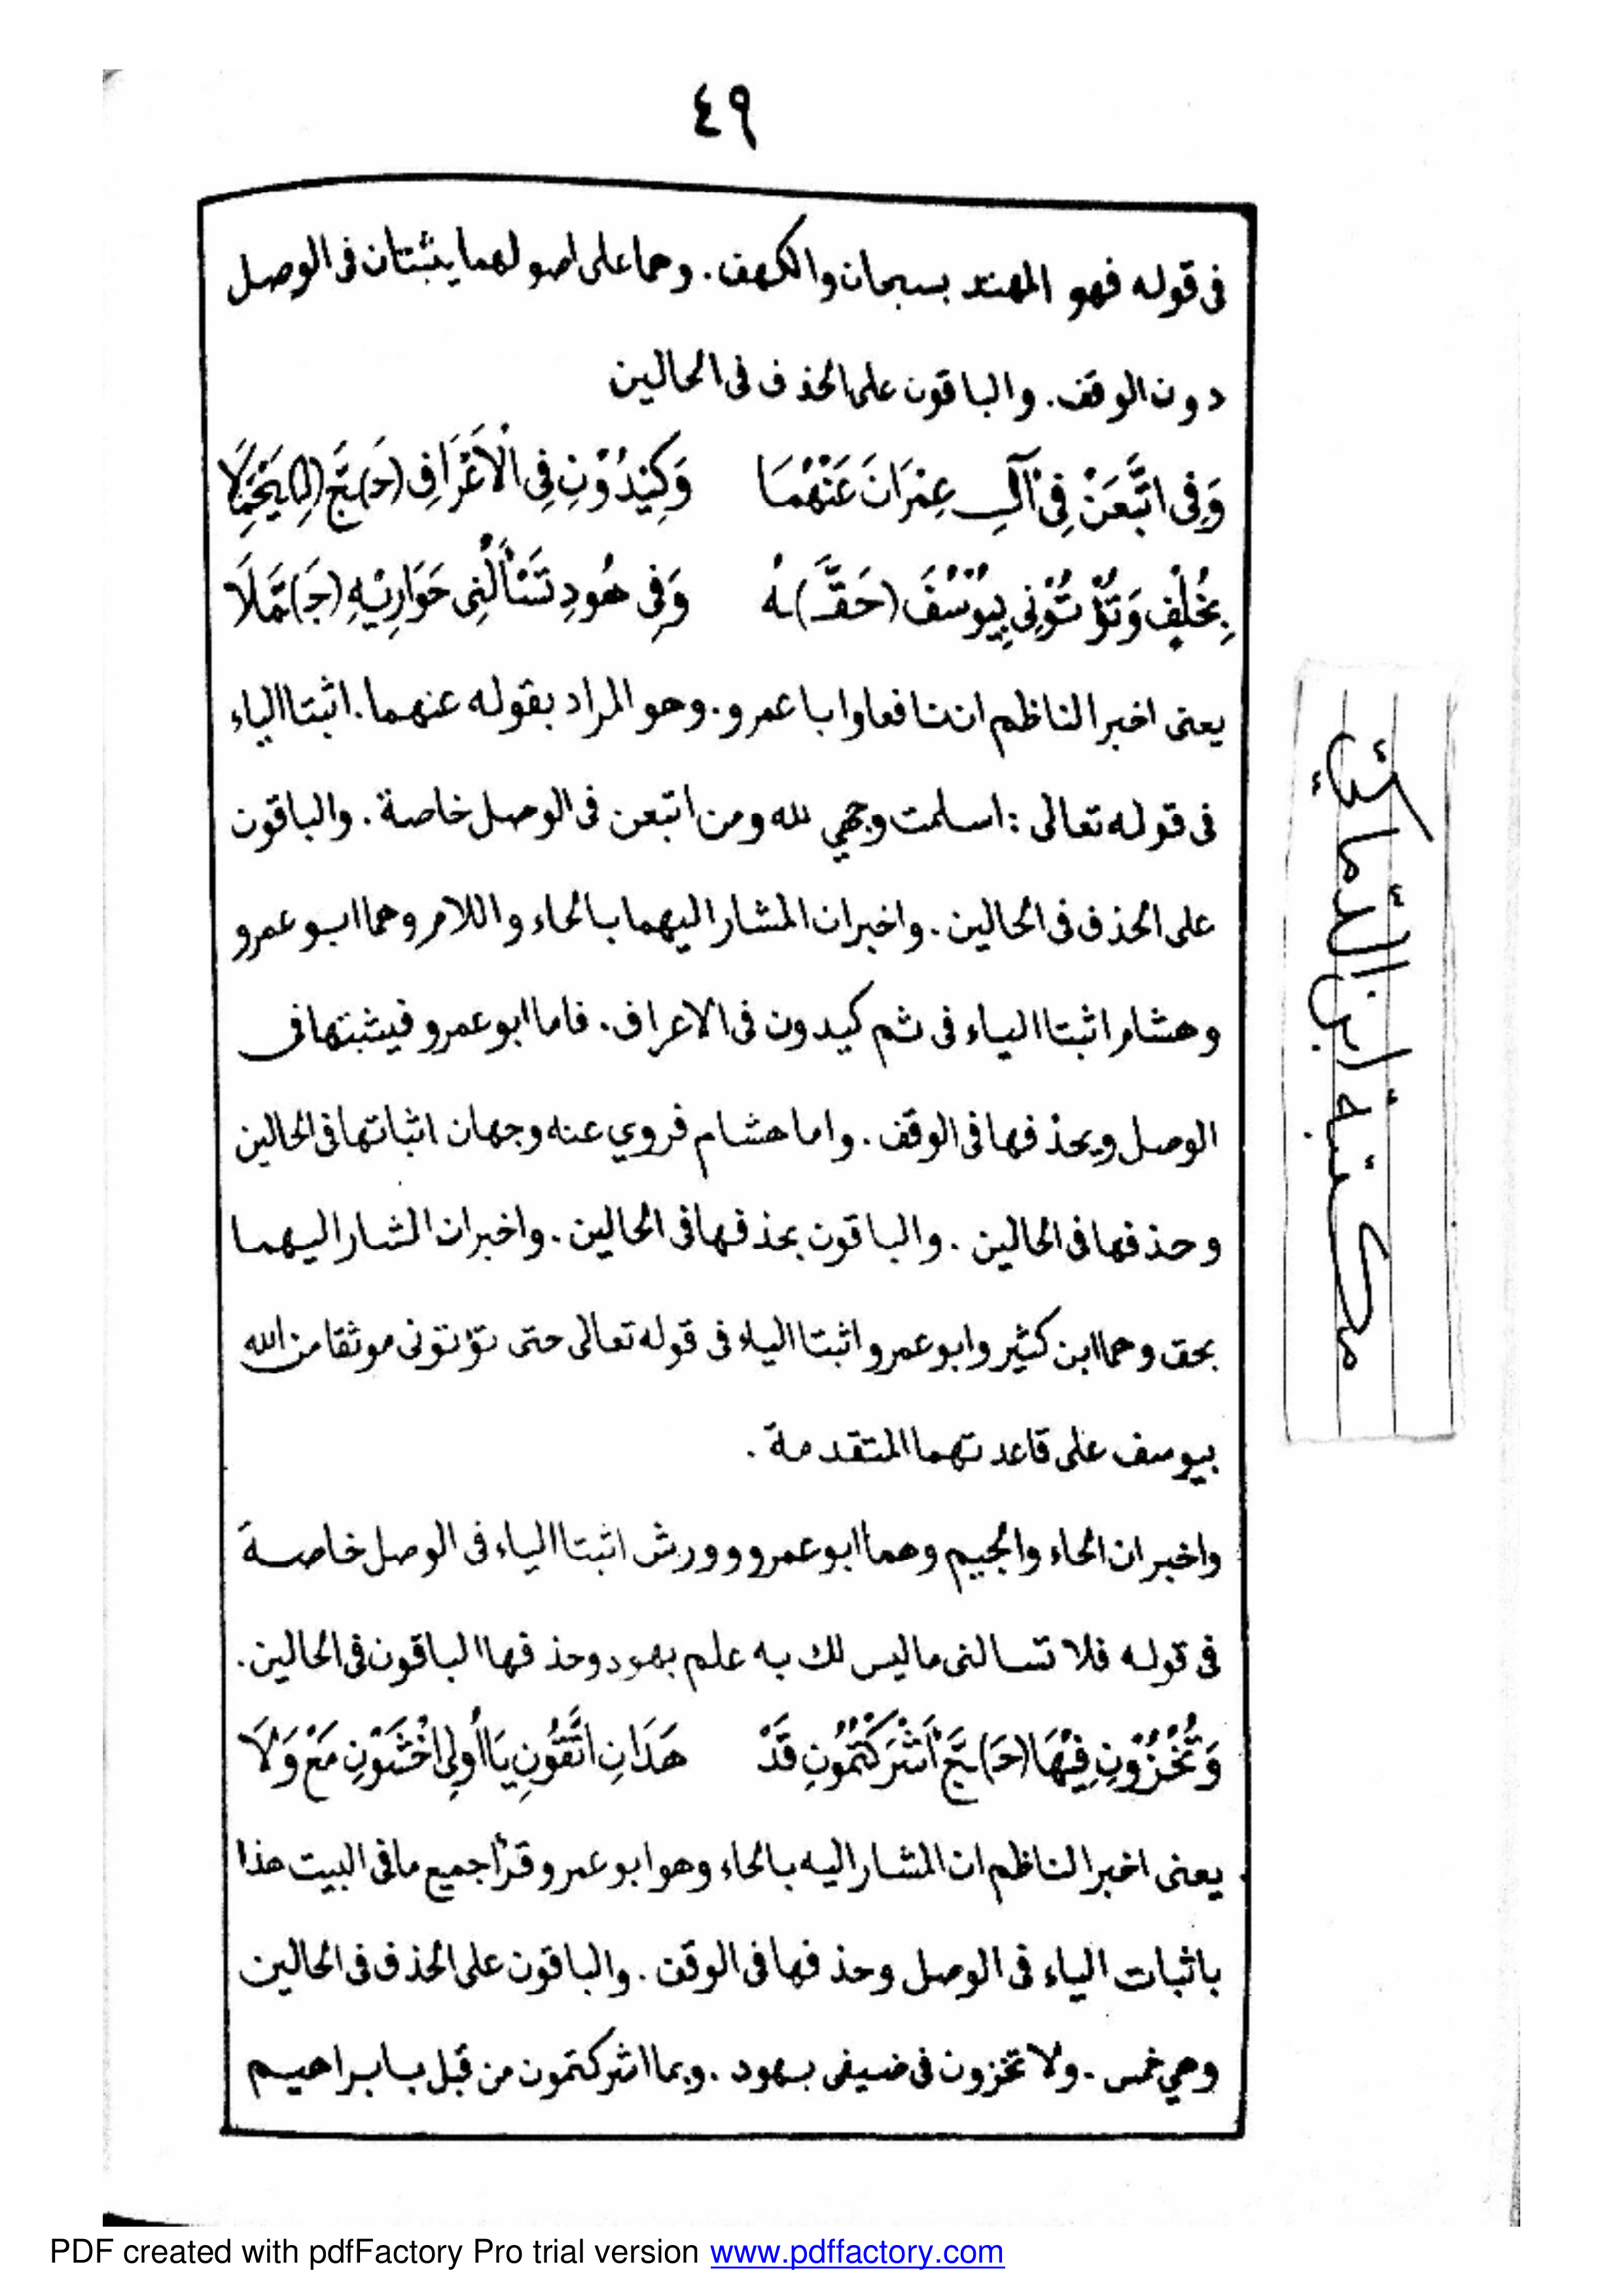 ٤٩
فى قوله فهو المهتد بسبحان والكهف . وهما على اصولهما يثبتان فى الوصل
دون الوقف . والباقون على الحذف فى الحالين
وَفِى اتَّبَعَنْ فِى آلِ عِمْرَانَ عَنْهُمَا وَكِيْدُوْنِ فِى الْاَعْرَافِ (حَ)جَّ (لِ)يُحْمَلَا
بِخُلْفٍ وَتُؤْتُوْنِى بِيُوْسُفَ (حَقُّـ)ـهُ وَفِى هُودِ تَسْأَلْنِى حَوَارِيْهِ (جَ)مَّلَا
يعنى اخبر الناظم ان نافعا وابا عمرو . وهو المراد بقوله عنهما . اثبتا الياء
فى قوله تعالى : اسلمت وجهي لله ومن اتبعن فى الوصل خاصة . والباقون
على الحذف فى الحالين . واخبر ان المشار اليهما بالحاء واللام وهما ابو عمرو
وهشام اثبتا الياء فى ثم كيدون فى الاعراف . فاما ابو عمرو فيثبتها فى
الوصل ويحذفها فى الوقف . واما هشام فروي عنه وجهان اثباتها فى الحالين
وحذفها فى الحالين . والباقون بحذفها فى الحالين . واخبر ان المشار اليهما
بحق وهما ابن كثير وابو عمرو اثبتا الياء فى قوله تعالى حتى تؤتونى موثقا من الله
بيوسف على قاعدتهما المتقدمة .
واخبر ان الحاء والجيم وهما ابو عمرو وورش اثبتا الياء فى الوصل خاصة
فى قوله فلا تسالنى ماليس لك به علم بهود وحذفها الباقون فى الحالين .
وَتُخْزُوْنِ فِيْهَا (حَ)جَّ اَشْرَكْتُمُوْنِ قَدْ هَدَانِ اتَّقُوْنِ يَا اُولِى اخْشَوْنِ مَعْ وَلَا
يعنى اخبر الناظم ان المشار اليه بالحاء وهو ابو عمرو قرأ جميع ما فى البيت هذا
باثبات الياء فى الوصل وحذفها فى الوقف . والباقون على الحذف فى الحالين
وهي خمس . ولا تخزون فى ضيفى بهود . وبما اشركتمون من قبل بابراهيم
مكتبة ابن الدماك
PDF created with pdfFactory Pro trial version www.pdffactory.com